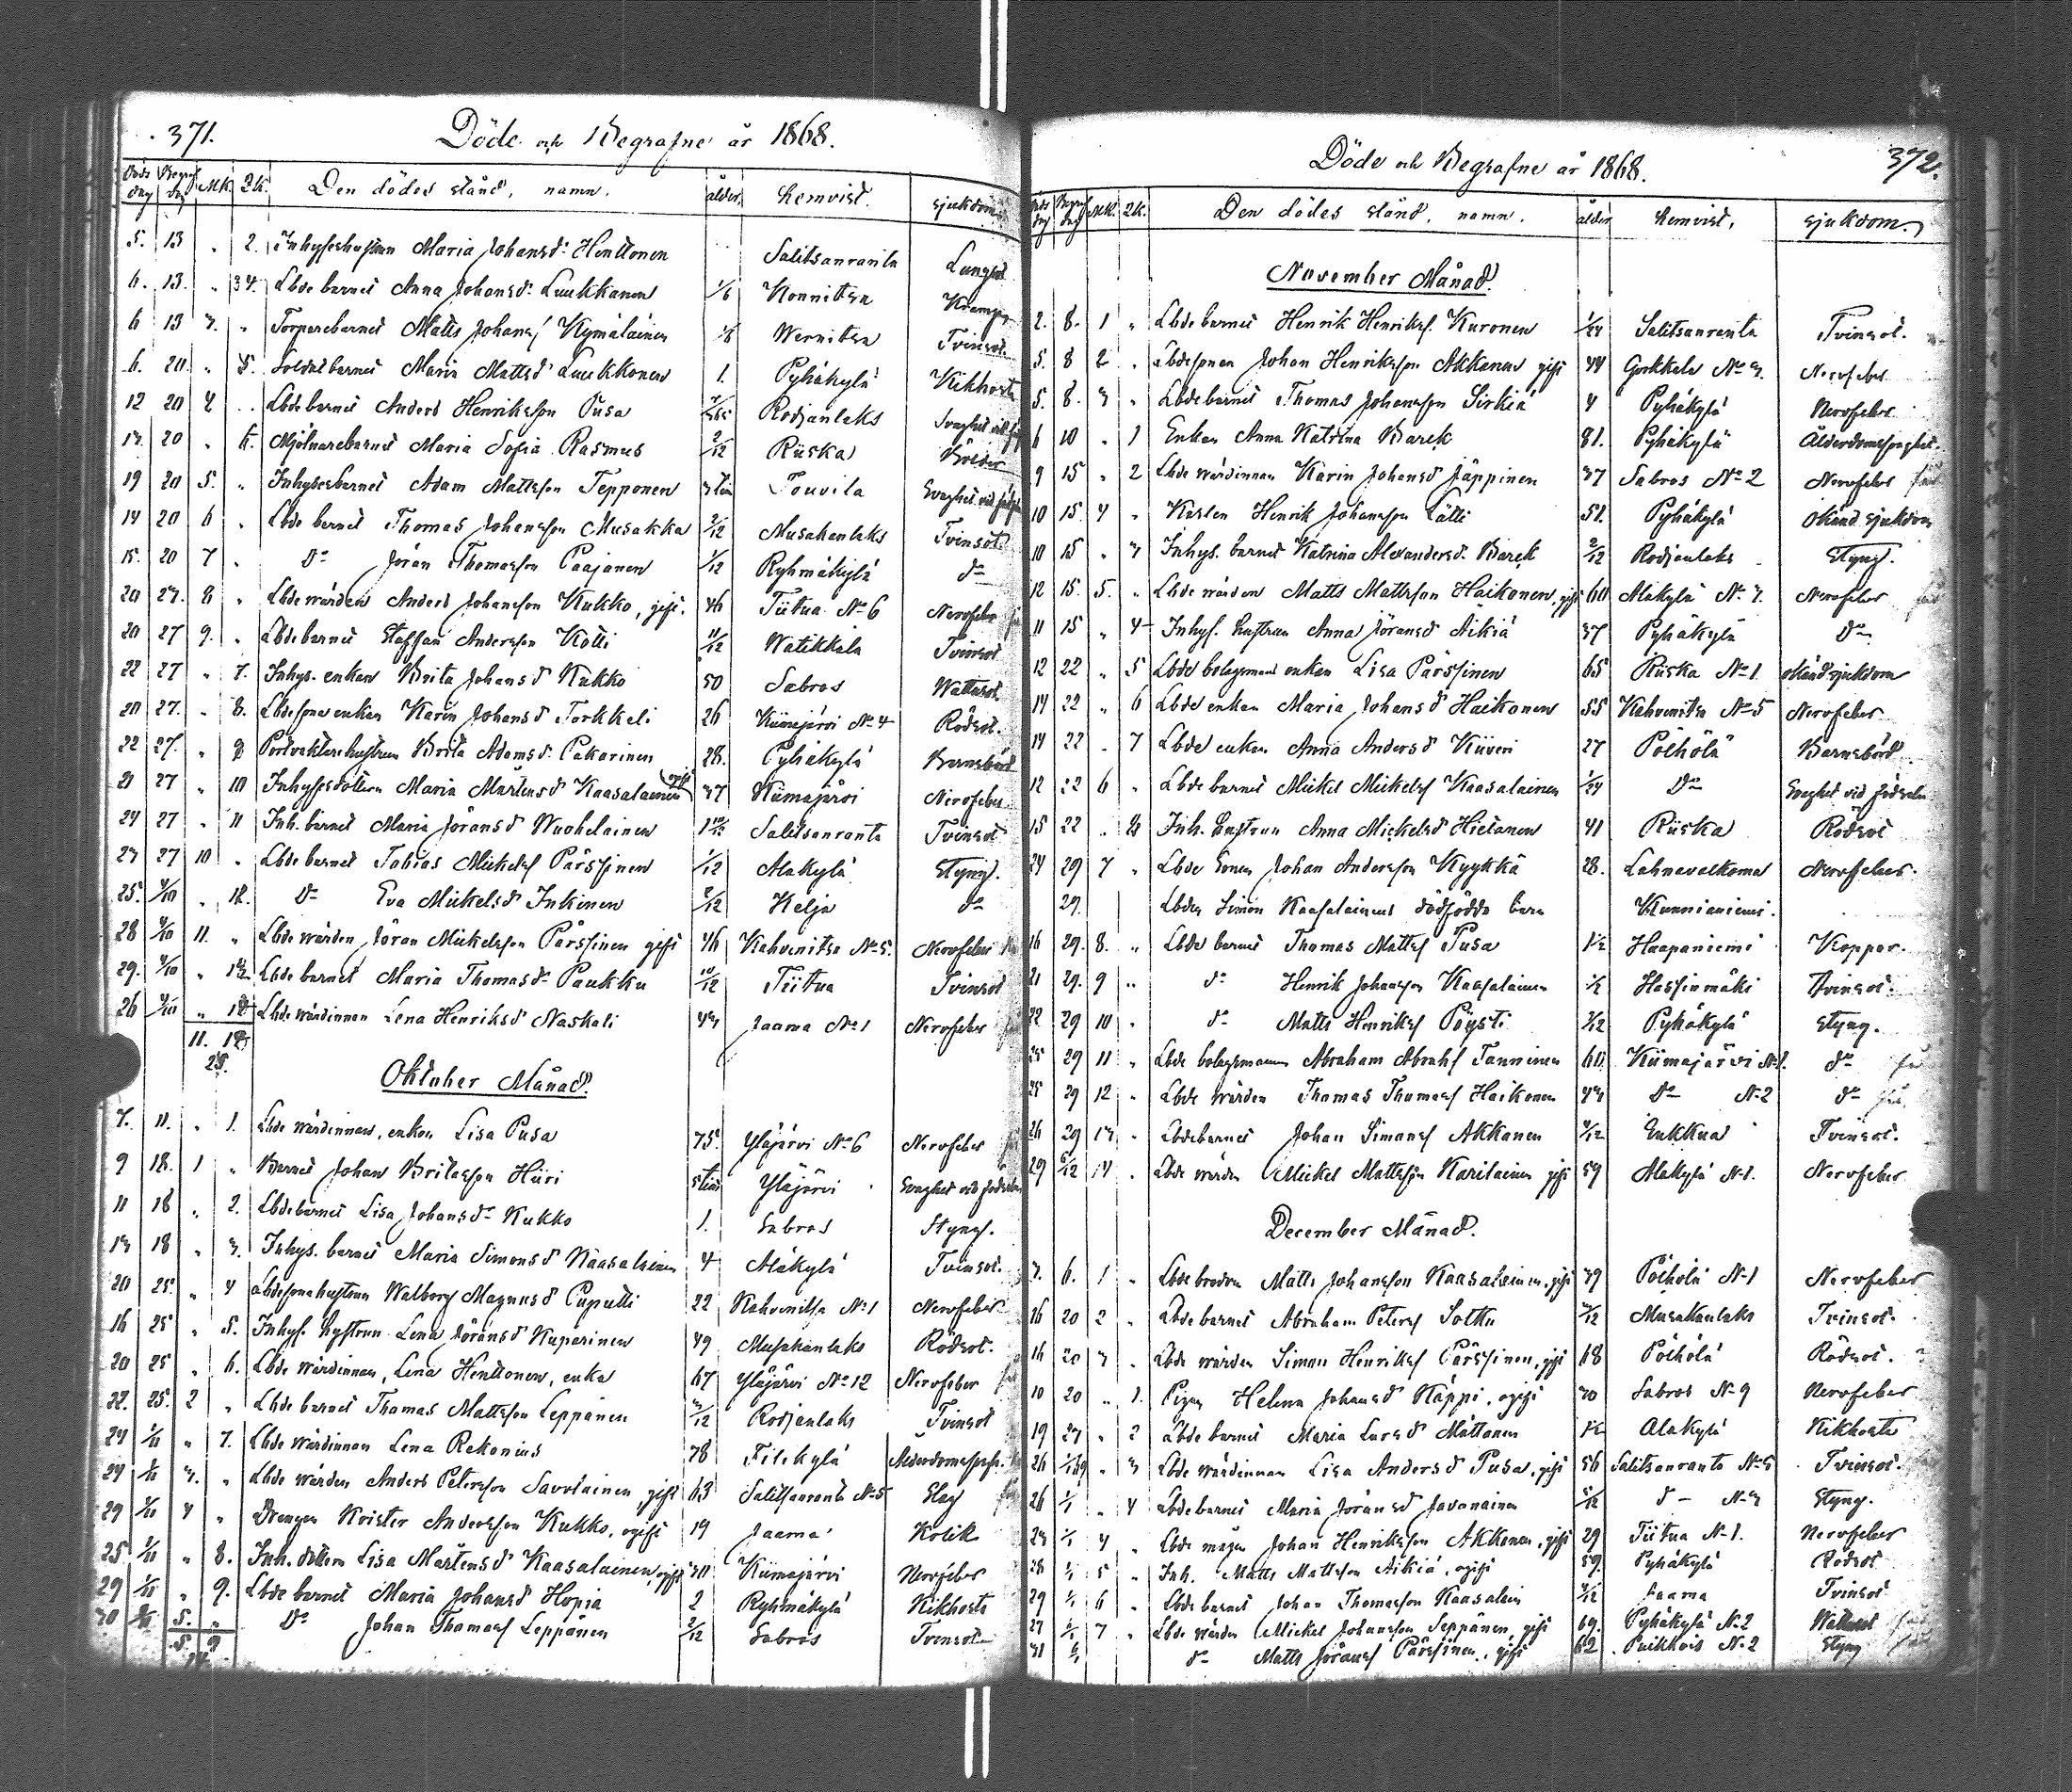 371.
Döde och Begrafne år 1868.
Döds dag Begraf dag MK. QK. Den dödes stånd, namn. ålder. hemvist. sjukdom
5. 13 " 2. Inhyseshustrun Maria Johansd. Henttonen Salitsanranta Lungsot
6. 13. " 3 Lbde barnet Anna Johansd. Luukkanen 1/6 Konnitsa Kramp
6 13 3. " Torparebarnet Matts Johans Kymäläinen Wernitsa Tvinsot.
6. 20. " 5. Soldatbarnet Maria Mattsd. Luukkonen 1. Pyhäkylä Kikhosta
12 20 4 " Lbde barnet Anders Henriksson Pusa Rodjanlaks Svaghet vid
13. 20 " 6. Mjölnarebarnet Maria Sofia Rasmus 2/12 Riiska
19 20 5. " Inhysesbarnet Adam Mattsson Tepponen 3 tim Touvila Svaghet vid födseln
14 20 6 " Lbde barnet Thomas Johansson Musakka 2/12 Musakanlaks Tvinsot
15. 20 7 " do Jöran Thomasson Paajanen 1/12 Ryhmäkylä do
20 27. 8 " Lbde värden Anders Johansson Kukko, gift. 46 Tiitua No 6 Nervfeber
20 27 9. " Lbde barnet Staffan Andersson Kölli 11/12 Watikkala Tvinsot
22 27 " 7. Inhys. enkan Brita Johansd Kukko 50 Sabros Wattusot
20 27. " 8. Lbdesone enkan Karin Johansd Torkkeli 26 Kiimajärvi No 4 Rödsot.
22 27. " 9 Portvaktarehustrun Brita Adamsd. Pakarinen 28. Pyhäkylä Barnsbörd
21 27 " 10 Inhysesdottern Maria Mårtensd Kaasalainen ogift 37 Kiimajärvi Nervfeber
24 27 " 11 Inh. barnet Maria Jöransd Wuohelainen 1 10/12 Salitsanranta Tvinsot
23 27 10 " Lbde barnet Tobias Mickelss Pärssinen 1/12 Alakylä Styng.
25. 4/10 " 12. do Eva Mickelsd Inkinen 2/12 Kelja do
28 4/10 11. " Lbde värden Jöran Mickelsson Pärssinen gift 46 Kahvenitsa No 5. Nervfeber
29. 4/10 " 13 Lbde barnet Maria Thomasd. Paukku 10/12 Tiitua Tvinsot
26 4/10 " Lbde värdinnan Lena Henriksd Naskali 43 Jaama No 1 Nervfeber
11.
25.
Oktober Månad.
7. 11. " 1. Lbde värdinnan, enkan Lisa Pusa 75. Yläjärvi No 6 Nervfeber
9 18. 1 " Barnet Johan Britasson Hiiri 5 tim Yläjärvi Svaghet vid födseln
11 18 " 2. Lbde barnet Lisa Johansd. Kukko 1. Sabros Styng.
13 18 " 3. Inhys. barnet Maria Simonsd Kaasalainen 4 Alakylä Tvinsot.
20 25. " 4 Lbdesonehustrun Walborg Magnusd Puputti 22 Kahvenitsa No 1 Nervfeber
16 25 " 5. Inhys. hustrun Lena Jöransd Kuparinen 49 Musakanlaks Rödsot.
20 25 " 6. Lbde värdinnan, Lena Henttonen, enka 67 Yläjärvi No 12 Nervfeber
22. 25. 2 " Lbde barnet Thomas Mattsson Leppänen 3/12 Rodjanlaks Tvinsot
24 1/11 " 7. Lbde värdinnan Lena Rekonius 78 Filikylä
24 1/11 3. " Lbde värden Anders Petersson Savolainen, gift 63 Salitsanranta No 5 Slag
29 1/11 4 " Drengen Krister Andersson Kukko, ogift 19 Jaama Kolik
25 1/11 " 8. Inh. dottern Lisa Mårtensd Kaasalainen, ogift 30 Kiimajärvi Nervfeber
29 1/11 " 9. Lbde barnet Maria Johansd Hopia 2 Ryhmäkylä Kikhosta
30 5. " do Johan Thomass Leppänen 2/12 Sabros Tvinsot
5. 9
372.
Döde och Begrafne år 1868.
Döds dag Begraf dag MK. QK. Den dödes stånd, namn. ålder hemvist. sjukdom.
November Månad.
2. 8. 1 " Lbde barnet Henrik Henrikss. Kuronen 1/24 Salitsanranta Tvinsot.
5. 8 2 " Lbdesonen Johan Henriksson Akkanen gift 44 Gorkkala No 3. Nervfeber
5. 8. 3 " Lbde barnet Thomas Johansson Sirkiä 4 Pyhäkylä Nervfeber
6 10 " 1 Enkan Anna Katrina Barck 81. Pyhäkylä Ålderdomssvaghet.
9 15 " 2 Lbde värdinnan Karin Johansd Jäppinen 37 Sabros No 2 Nervfeber
10 15 4 " Karlen Henrik Johansson Lätti 51. Pyhäkylä Okänd sjukdom
10 15 " 3 Inhys. barnet Katrina Alexandersd. Barck 2/12 Rodjanlaks Styng.
12 15. 5. " Lbde värden Matts Mattsson Haikonen, gift 60 Alakylä No 7. Nervfeber
11 15 " 4 Inhys. hustrun Anna Jöransd Äikiä 37 Pyhäkylä do
12 22 " 5 Lbde bolagsmans enkan Lisa Pärssinen 65 Riiska No 1 okänd sjukdom
14 22 " 6 Lbde enkan Maria Johansd Haikonen 55 Kahvenitsa No 5 Nervfeber
14 22 " 7 Lbde enkan Anna Andersd Kiiveri 27 Pölhölä Barnsbörd
12 22 6 " Lbde barnet Mickel Mickelss Kaasalainen 1/24 do Svaghet vid födseln
15 22 " 8 Inh. hustrun Anna Mickelsd Hietanen 41 Riiska Rödsot
24 29 7 " Lbde sonen Johan Andersson Kyykkä 28. Lahnavalkama Nervfeber.
29. Lbden Simon Kaasalainens dödfödda barn Kunnianiemi.
16 29. 8. " Lbde barnet Thomas Mattss Pusa 1 1/2 Haapaniemi Koppor.
21 29. 9 " do Henrik Johansson Kaasalainen 1/2 Hassinmäki Tvinsot.
22 29 10 " do Matts Henrikss Pöysti Pyhäkylä Styng.
25 29 11 " Lbde bolagsmannen Abraham Abrahs Tanninen 60. Kiimajärvi No 1. do
25 29 12 " Lbde värden Thomas Thomass Haikonen 43 do No 2 do
26 29 13 " Lbde barnet Johan Simonss Akkanen Enkkua Tvinsot.
29 6/12 14 " Lbde värden Mickel Mattsson Karilainen gift 59 Alakylä No 1. Nervfeber
December Månad.
3. 6. 1 " Lbde brodren Matts Johansson Kaasalainen, gift 39 Pölhölä No 1 Nervfeber
16 20 2 " Lbde barnet Abraham Peterss Sotku Musakanlaks Tvinsot.
16 20 3 " Lbde värden Simon Henrikss Pärssinen, gift 68 Pölhölä Rödsot.
10 20 " 1. Pigan Helena Johansd Käppi, ogift 30 Sabros No 9 Nervfeber
19 27 " 2 Lbde barnet Maria Larsd Mattonen 1 1/2 Alakylä Kikhosta
26 1/1 69 " 3 Lbde värdinnan Lisa Andersd Pusa, gift 56 Salitsanranta No 5 Tvinsot.
26 1/1 " 4 Lbde barnet Maria Jöransd Javanainen 5/12 do No 3 Styng.
23 1/1 4 " Lbde mågen Johan Henriksson Akkanen, gift 29 Tiitua No 1. Nervfeber
28 1/1 5 " Inh. Matts Mattsson Äikiä, ogift 59. Pyhäkylä Rödsot
29 1/1 6 " Lbde barnet Johan Thomasson Kaasalain Jaama Tvinsot
27 1/1 7 " Lbde värden Mickel Johansson Seppänen, gift 69. Pyhäkylä No 2 Wattusot
31 do Matts Jöranss Pärssinen, gift 62 Puikkois No 2 Styng